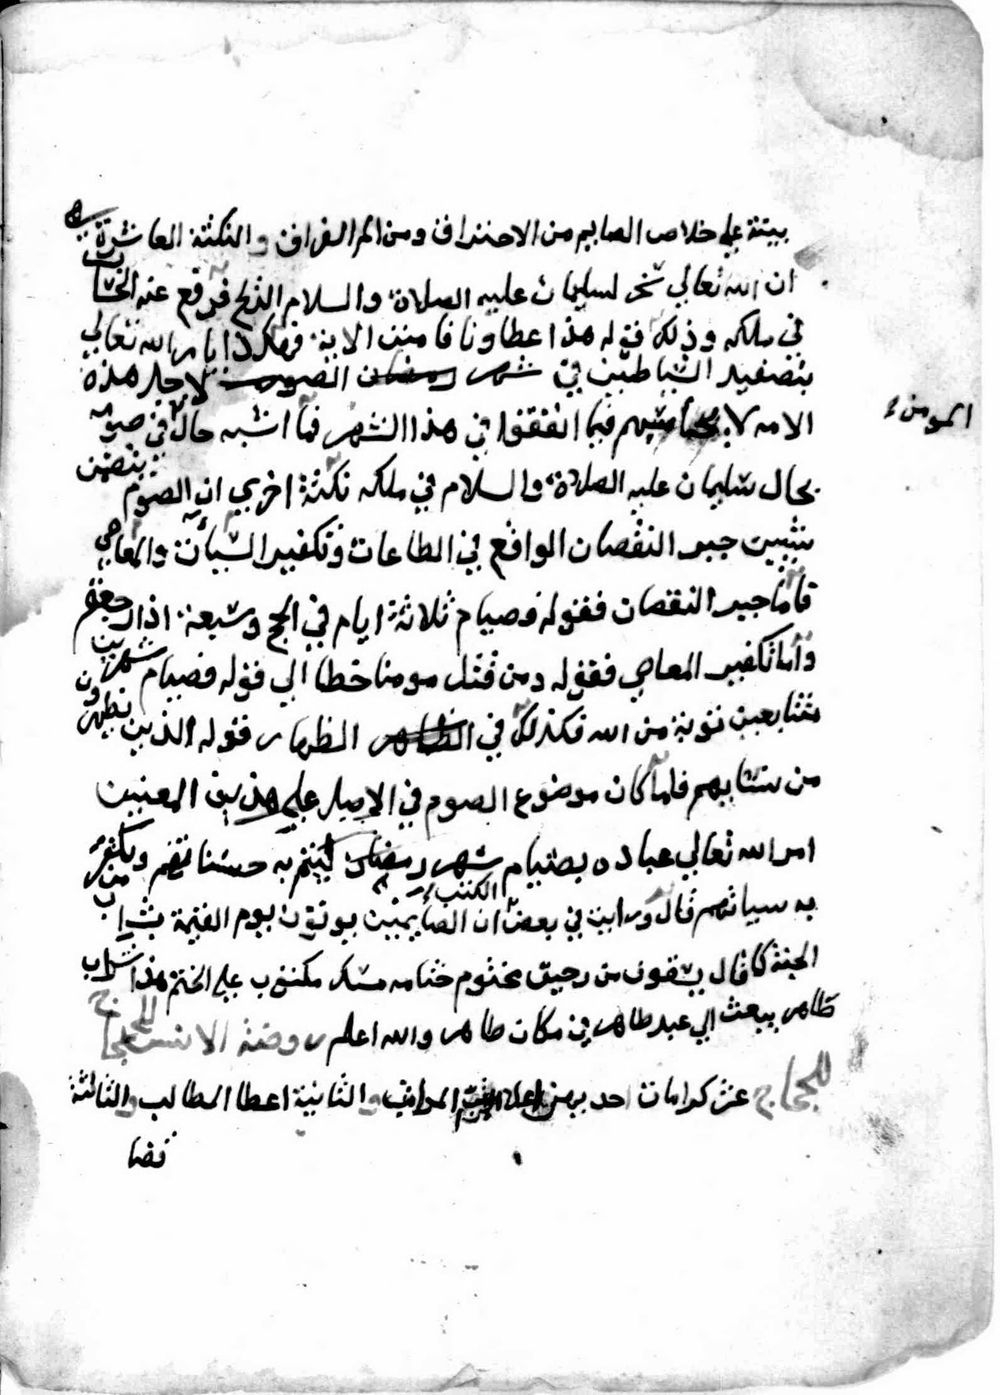 بينة علي خلاص الصايم من الاحتراق ومن الم الفراق والنكتة العاشرة هي
ان الله تعالي سخر لسليمان عليه الصلاة والسلام الريح فرفع عنه الحساب
في ملكه وذلك قوله هذا عطاونا فامنن الاية فهكذا يامر الله تعالي
بتصفيد الشياطين في شهر رمضان الصوم لاجل هذه
الامه لا يحاسبهم فيما انفقوا في هذا الشهر فما اشبه حال في صومه
المومن
بحال سليمان عليه الصلاة والسلام في ملكه نكتة اخري ان الصوم يتضمن
شيين جبر النقصان الواقع في الطاعات وتكفير السيأت والمعاصي
فاما جبر النقصان فقوله فصيام ثلاثة ايام في الحج وسبعة اذا رجعتم
واما تكفير المعاصي فقوله ومن قتل مومنا خطا الي قوله فصيام شهرين
متتابعين توبة من الله فكذلك في الظاهر الظهار قوله الذين يظهرون
من نسايهم فلما كان موضوع الصوم في الاصل علي هذين المعنيين
امر الله تعالي عباده بصيام شهر رمضان ليتم به حسناتهم ويكفر
به سياتهم قال ورايت في بعض الكتب ان الصايمين يوتون يوم القيمة بشراب من
الجنة كما قال يسقون من رحيق مختوم ختامه مسك مكتوب علي الختم هذا شراب
طاهر يبعث الي عبد طاهر في مكان طاهر والله اعلم روضة الانس للحجاج
للحجاج عشر كرامات احديهن المراتب والثانية اعطا المطالب والثالثة
قضا